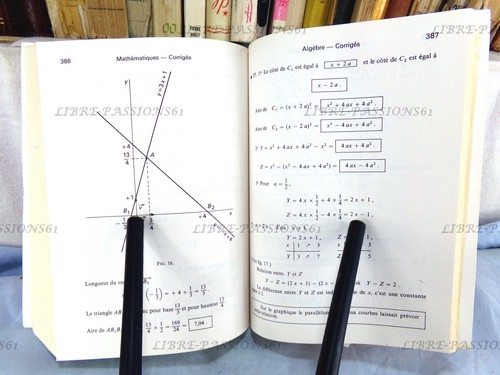 386
Mathématiques — Corrigés
y
y=3x+1
+4
13/4
A
+1
B₁
V
B₂
-1/3
3/4
+4
x
FIG. 16.
Longueur du
(-1/3) = +4 + 1/3 = 13/3.
Le triangle AB₁ pour base 13/3 et pour hauteur 13/4.
Aire de AB₁B₂ 13/4 × 1/2 = 169/24 = 7,04.
Algèbre — Corrigés
387
1° Le côté de C₁ est égal à x + 2a et le côté de C₂ est égal à
x − 2a.
Aire de C₁ = (x + 2a)² = x² + 4ax + 4a².
Aire de C₂ = (x − 2a)² = x² − 4ax + 4a².
2° Y = x² + 4ax + 4a² − x² = 4ax + 4a².
Z = x² − (x² − 4ax + 4a²) = 4ax − 4a².
3° Pour a = 1/2,
Y = 4x × 1/2 + 4 × 1/4 = 2x + 1,
Z = 4x × 1/2 − 4 × 1/4 = 2x − 1,
Y = 2x + 1, Z
x | 1 3
Y | 3 7
3
5
fig. 17.)
Relation entre Y et Z
Y − Z = (2x + 1) − (2x Y − Z = 2.
La différence entre Y et Z est de x, c'est une constante
Sur le graphique le parallélisme courbes laissait prévoir
relation.
LIBRE-PASSIONS61